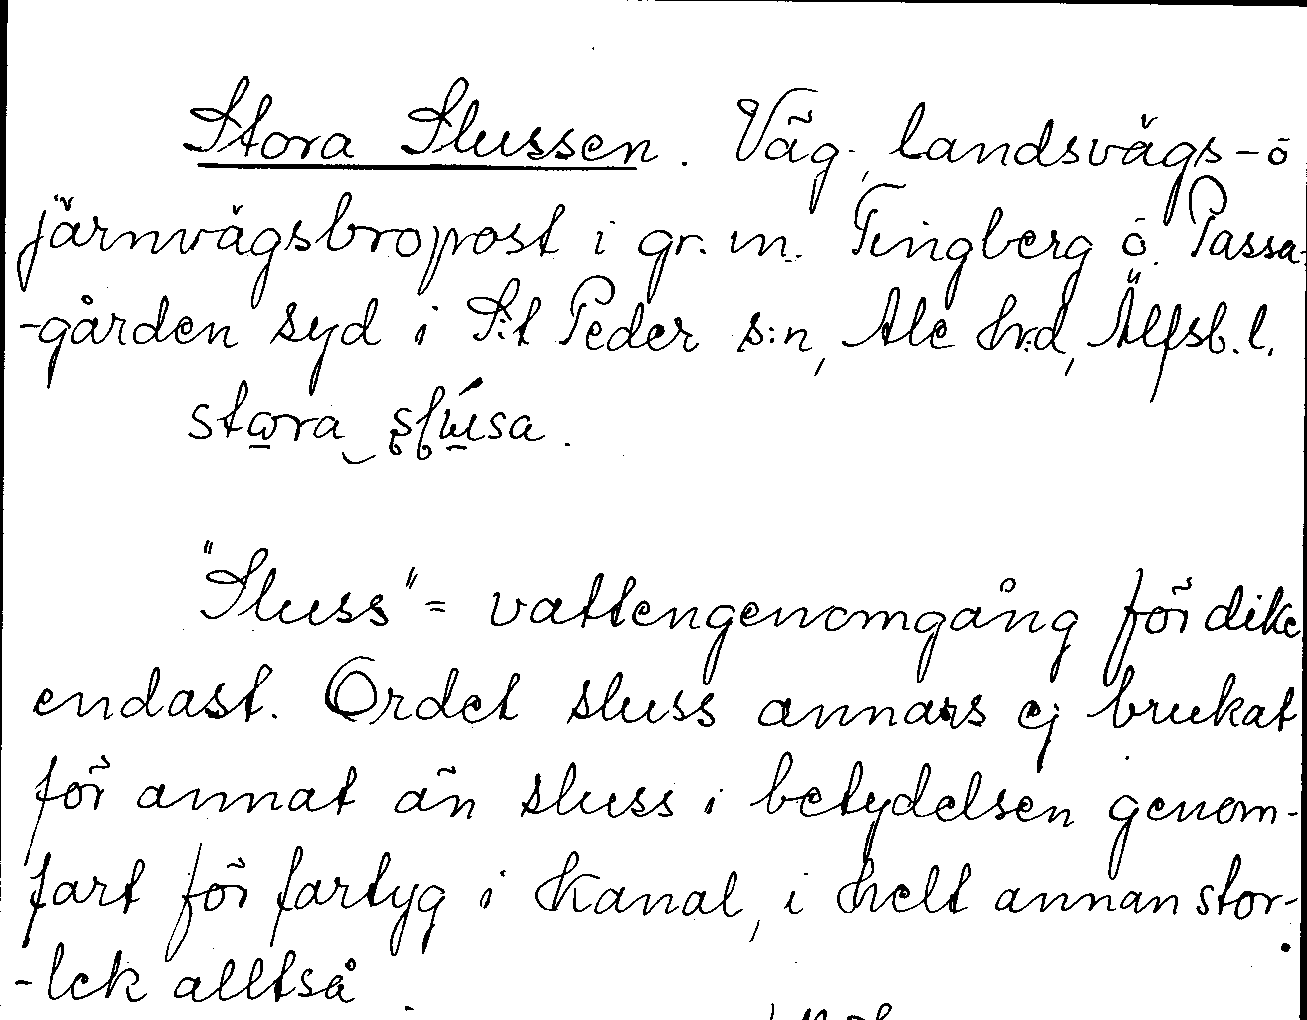 Stora Slussen. Väg-, landsvägs- o
järnvägsbropost i gr. m. Tingberg o. Passa-
-gården syd i S:t Peder s:n, Ale h:d, Älfsb. l.
stora slusa.
"Sluss" = vattengenomgång för dike
endast. Ordet sluss annars ej brukat
för annat än sluss i betydelsen genom-
fart för fartyg i kanal, i helt annan stor-
-lek alltså.